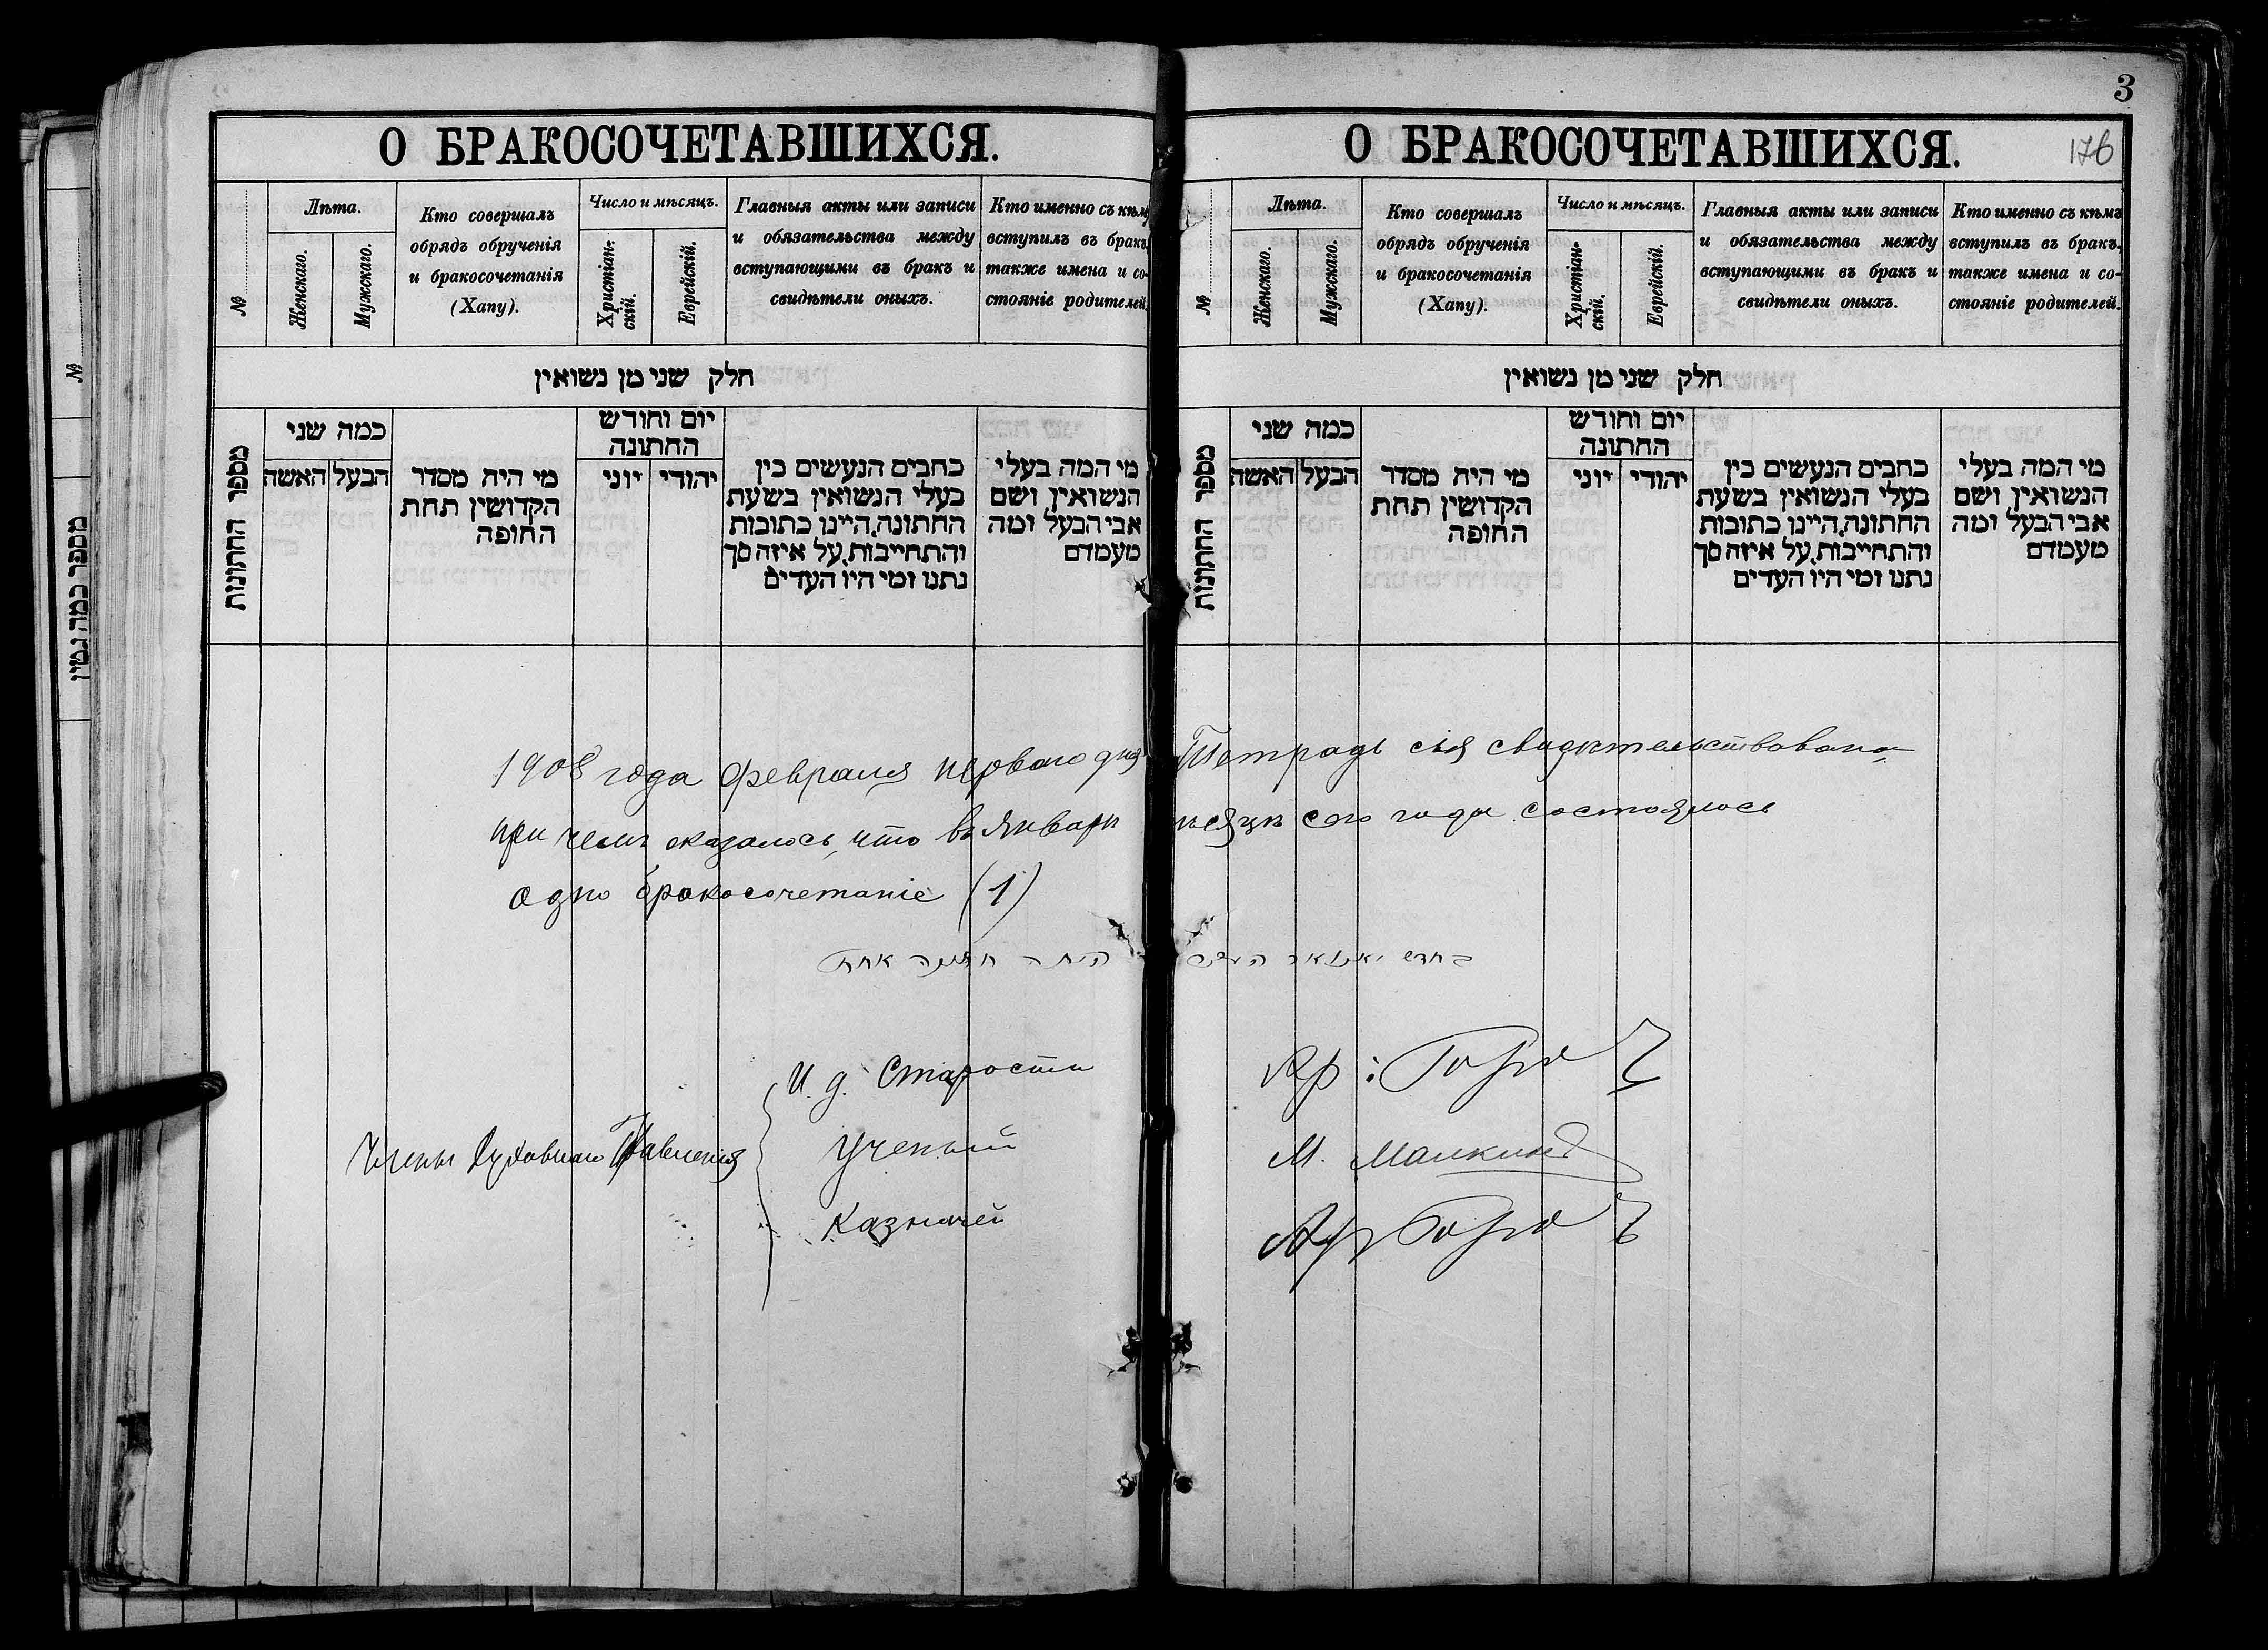 3
О БРАКОСОЧЕТАВШИХСЯ.
№
Лѣта.
Женскаго.
Мужскаго.
Кто совершалъ
обрядъ обрученія
и бракосочетанія
(Хапу).
Число и мѣсяцъ.
Христіан-
скій.
Еврейскій.
Главныя акты или записи
и обязательства между
вступающими въ бракъ и
свидѣтели оныхъ.
Кто именно съ кѣмъ
вступилъ въ бракъ,
также имена и со-
стояніе родителей.
חלק שני מן נשואין
מספר החתונות
כמה שני
הבעל
האשה
מי היה מסדר
הקדושין תחת
החופה
יום וחודש
החתונה
יהודי
יוני
כתבים הנעשים בין
בעלי הנשואין בשעת
החתונה, היינו כתובות
והתחייבות, על איזה סך
נתנו ומי היו העדים
מי המה בעלי
הנשואין ושם
אבי הבעל ומה
מעמדם
О БРАКОСОЧЕТАВШИХСЯ.
176
№
Лѣта.
Женскаго.
Мужскаго.
Кто совершалъ
обрядъ обрученія
и бракосочетанія
(Хапу).
Число и мѣсяцъ.
Христіан-
скій.
Еврейскій.
Главныя акты или записи
и обязательства между
вступающими въ бракъ и
свидѣтели оныхъ.
Кто именно съ кѣмъ
вступилъ въ бракъ,
также имена и со-
стояніе родителей.
חלק שני מן נשואין
מספר החתונות
כמה שני
הבעל
האשה
מי היה מסדר
הקדושין תחת
החופה
יום וחודש
החתונה
יהודי
יוני
כתבים הנעשים בין
בעלי הנשואין בשעת
החתונה, היינו כתובות
והתחייבות, על איזה סך
נתנו ומי היו העדים
מי המה בעלי
הנשואין ושם
אבי הבעל ומה
מעמדם
1908 года февраля перваго дня Тетрадь сія свидѣтельствована,
при чемъ оказалось, что въ Январѣ мѣсяцѣ сего года состоялось
одно бракосочетаніе (1)
בחדש יאנואר היתה חתונה אחת
Члены Духовнаго Правленія
И. д. Старосты
Ученый М. Малкинъ
Казначей
№
מספר כמה גטין